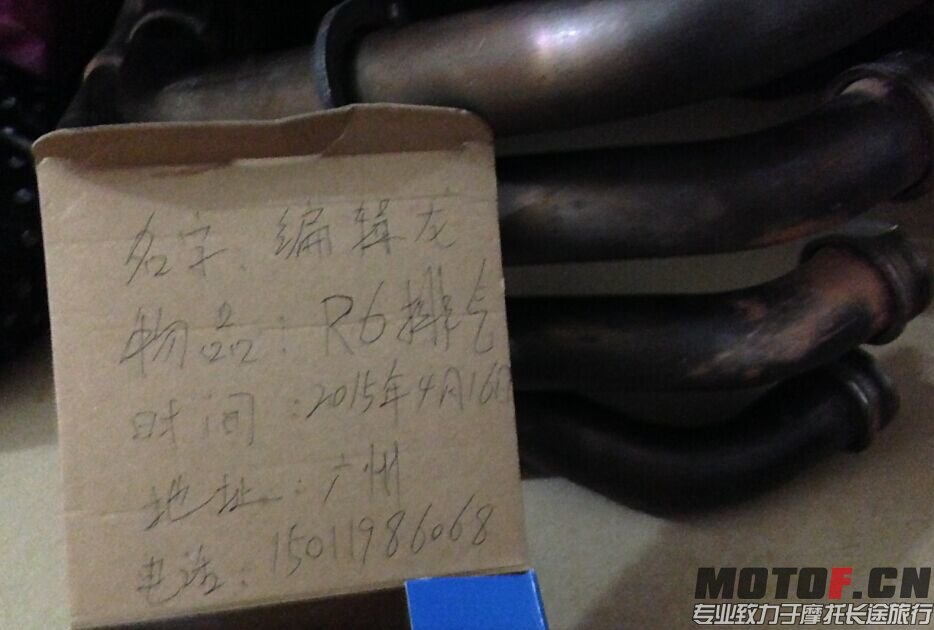 名字:编辑龙
物品:R6排气
时间:2015年4月16日
地址:广州
电话:15011986068
MOTOF.CN
专业致力于摩托长途旅行